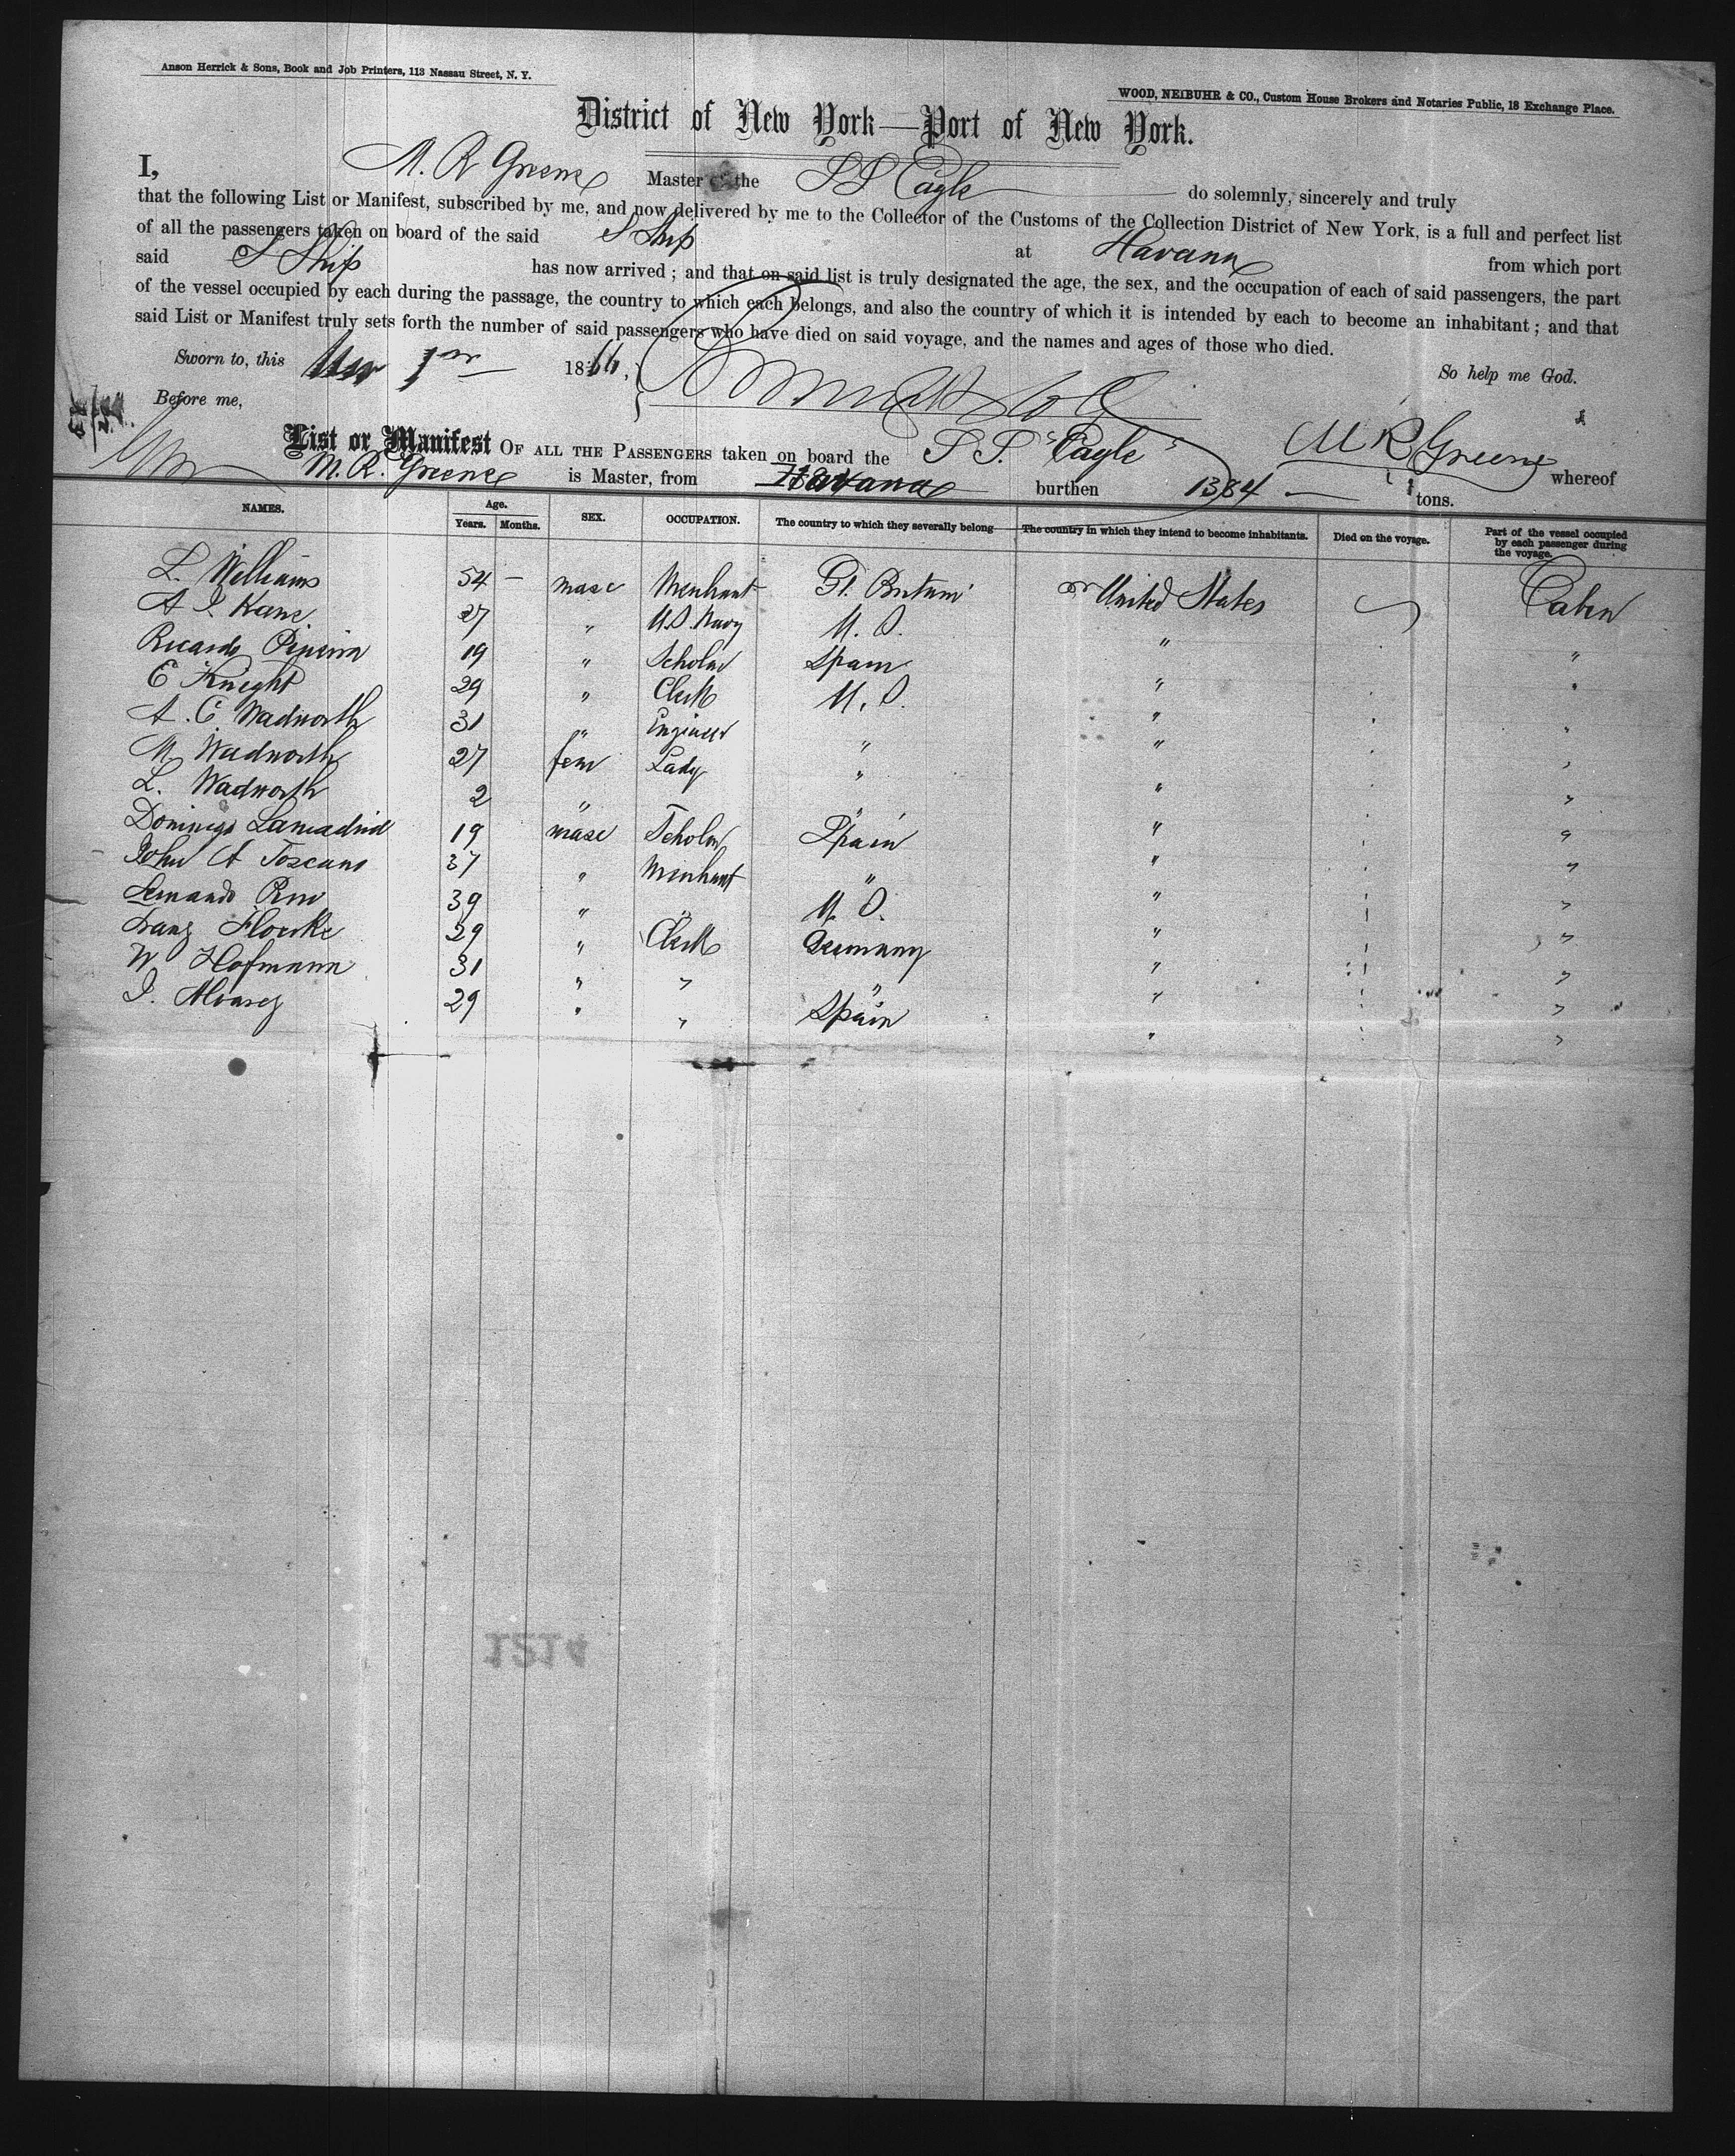 Anson Herrick & Sons, Book and Job Printers, 113 Nassau Street, N. Y.
WOOD, NEIBUHR & CO., Custom House Brokers and Notaries Public, 18 Exchange Place.
District of New York—Port of New York.
I, M. R Greene Master of the S S Eagle do solemnly, sincerely and truly
that the following List or Manifest, subscribed by me, and now delivered by me to the Collector of the Customs of the Collection District of New York, is a full and perfect list
of all the passengers taken on board of the said S Ship at Havana from which port
said S Ship has now arrived ; and that on said list is truly designated the age, the sex, and the occupation of each of said passengers, the part
of the vessel occupied by each during the passage, the country to which each belongs, and also the country of which it is intended by each to become an inhabitant ; and that
said List or Manifest truly sets forth the number of said passengers who have died on said voyage, and the names and ages of those who died.
Sworn to, this 1 1866, So help me God.
Before me,
M R Greene
List or Manifest OF ALL THE PASSENGERS taken on board the S S. "Eagle" whereof
M. R. Greene is Master, from Havana burthen 1384 tons.
NAMES. Age. Years. Months. SEX. OCCUPATION. The country to which they severally belong The country in which they intend to become inhabitants. Died on the voyage. Part of the vessel occupied by each passenger during the voyage.
L. Williams 54 — masc Merchant Gt. Britain United States Cabin
A I Kane 27 " U.S. Navy U. S. " "
Ricardo 19 " Scholar Spain " "
E Knight 29 " Clerk U. S. " "
A. E Wadworth 31 " Engineer " " "
M Wadworth 27 fem Lady " " "
L. Wadworth 2 " " " "
Domingo Lamadrid 19 masc Scholar Spain " "
John A Toscano 37 " Merchant " " "
Fernando 39 " " U. S. " "
Franz Floerke 29 " Clerk Germany " "
W Hofmann 31 " " " " "
I. Alvarez 29 " " Spain " "
1214